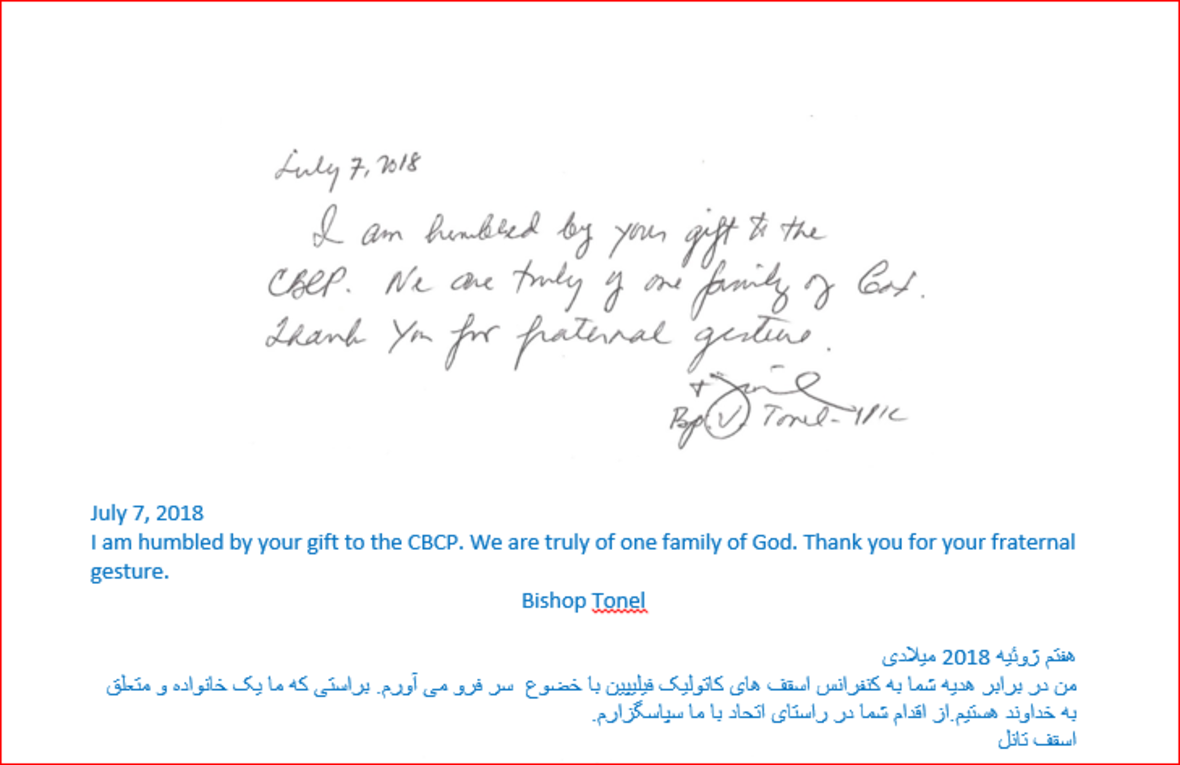 July 7, 2018
I am humbled by your gift to the
CBCP. We are truly of one family of God.
Thank You for fraternal gesture.
Bp. V. Tonel
July 7, 2018
I am humbled by your gift to the CBCP. We are truly of one family of God. Thank you for your fraternal
gesture.
Bishop Tonel
هفتم ژوئیه 2018 میلادی
من در برابر هدیه شما به کنفرانس اسقف های کاتولیک فیلیپین با خضوع سر فرو می آورم. براستی که ما یک خانواده و متعلق
به خداوند هستیم.از اقدام شما در راستای اتحاد با ما سپاسگزارم.
اسقف تانل